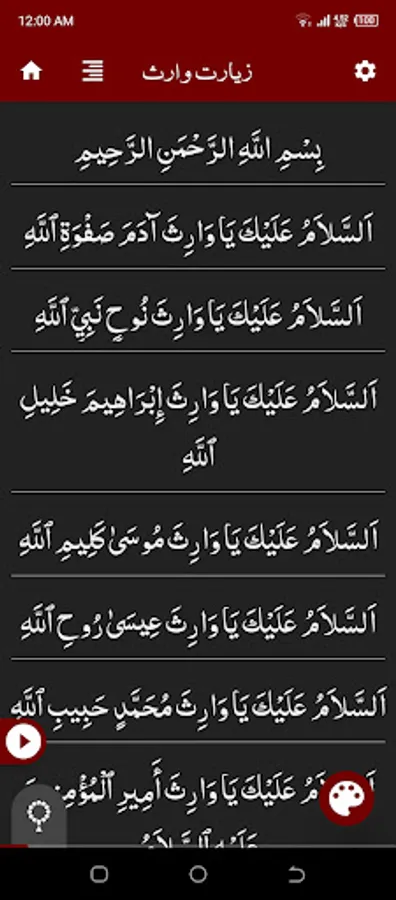 12:00 AM
100
زیارت وارث
بِسْمِ اللَّهِ الرَّحْمَنِ الرَّحِيمِ
اَلسَّلاَمُ عَلَيْكَ يَا وَارِثَ آدَمَ صَفْوَةِ ٱللَّهِ
اَلسَّلاَمُ عَلَيْكَ يَا وَارِثَ نُوحٍ نَبِيِّ ٱللَّهِ
اَلسَّلاَمُ عَلَيْكَ يَا وَارِثَ إِبْرَاهِيمَ خَلِيلِ
ٱللَّهِ
اَلسَّلاَمُ عَلَيْكَ يَا وَارِثَ مُوسَىٰ كَلِيمِ ٱللَّهِ
اَلسَّلاَمُ عَلَيْكَ يَا وَارِثَ عِيسَىٰ رُوحِ ٱللَّهِ
اَلسَّلاَمُ عَلَيْكَ يَا وَارِثَ مُحَمَّدٍ حَبِيبِ ٱللَّهِ
عَلَيْكَ يَا وَارِثَ أَمِيرِ